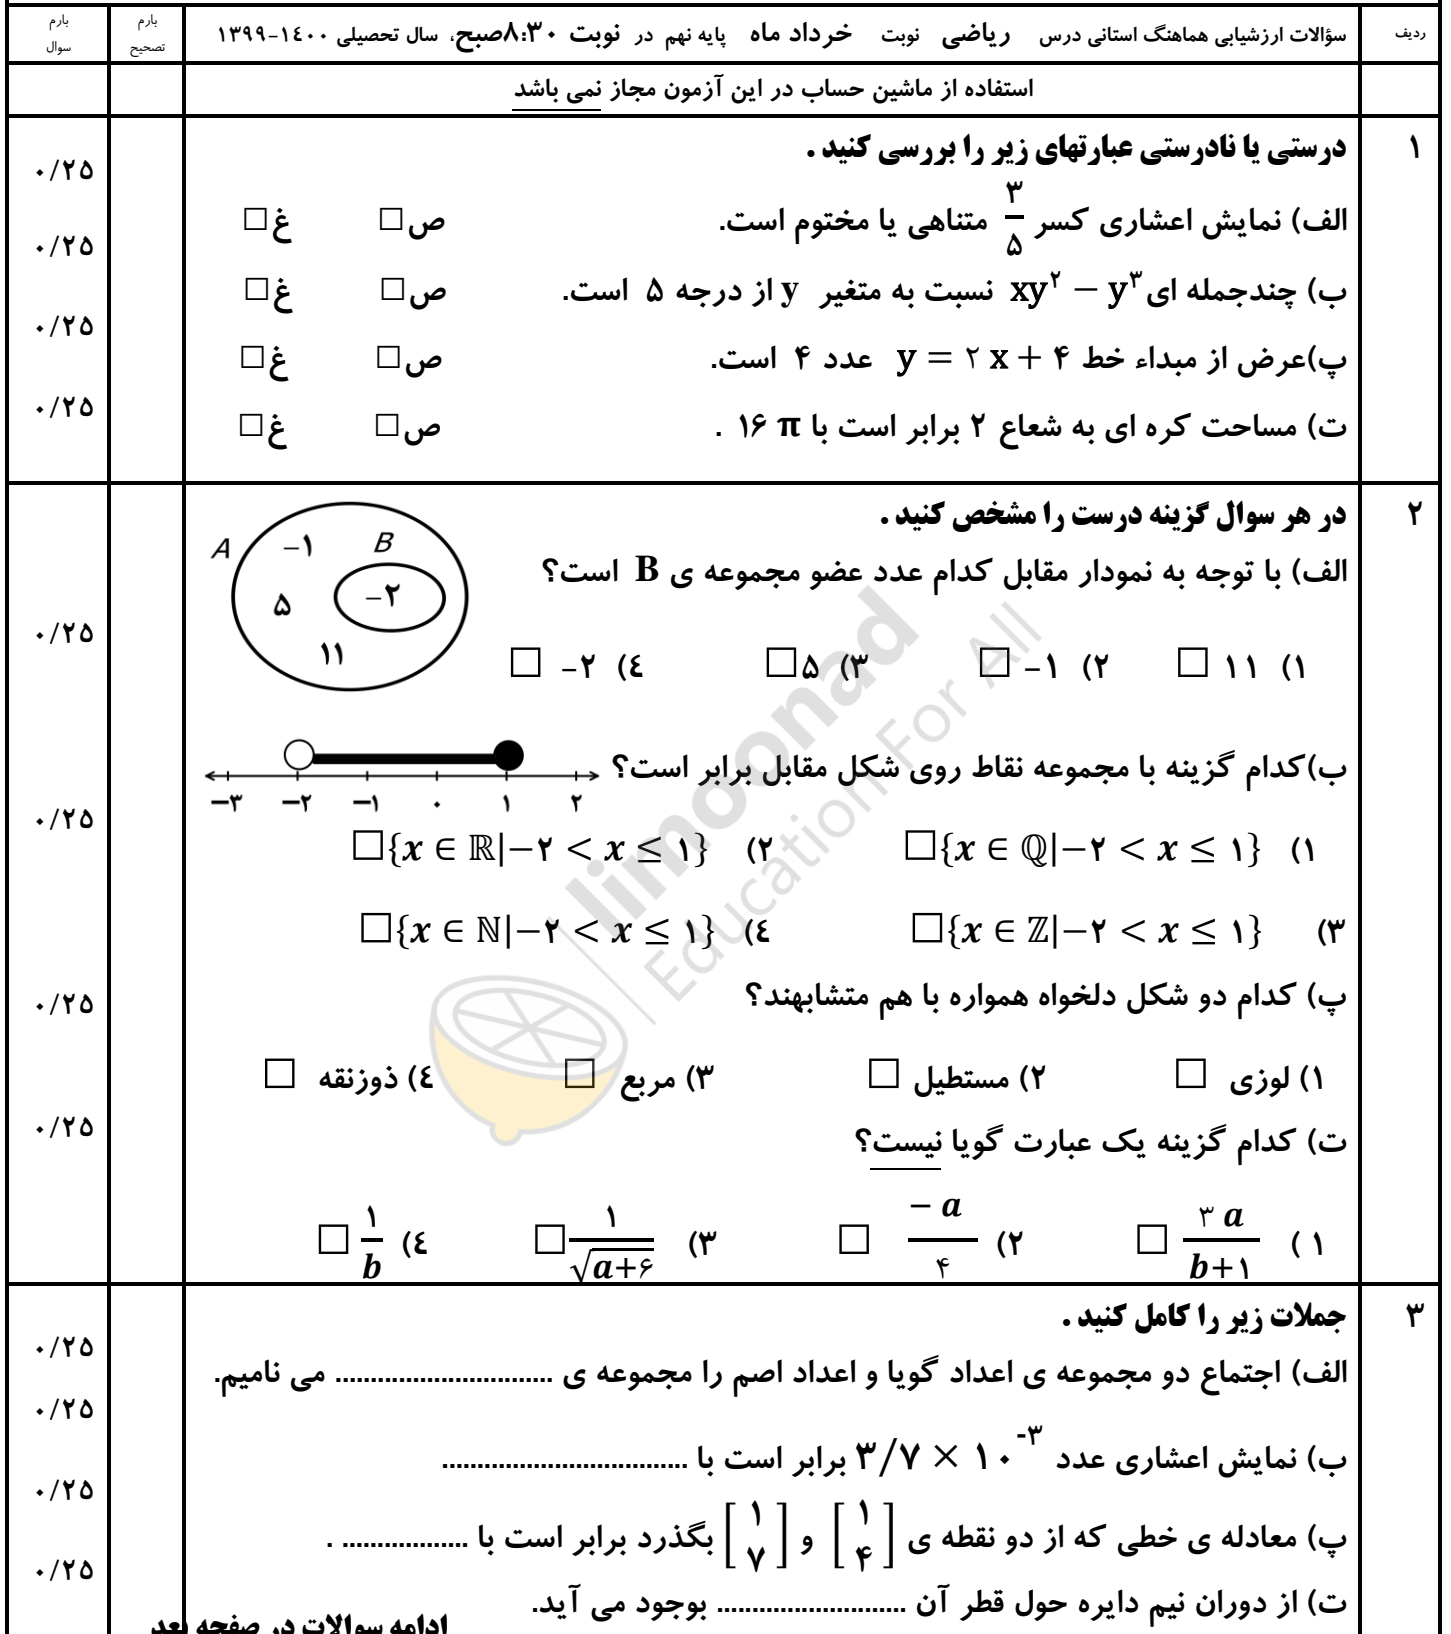 ردیف سؤالات ارزشیابی هماهنگ استانی درس ریاضی نوبت خرداد ماه پایه نهم در نوبت ۸:۳۰صبح، سال تحصیلی ۱۴۰۰-۱۳۹۹ بارم تصحیح بارم سوال
استفاده از ماشین حساب در این آزمون مجاز نمی باشد
۱ درستی یا نادرستی عبارتهای زیر را بررسی کنید .
الف) نمایش اعشاری کسر ۳/۵ متناهی یا مختوم است. ص□ غ□ ۰/۲۵
ب) چندجمله ای xy² − y³ نسبت به متغیر y از درجه ۵ است. ص□ غ□ ۰/۲۵
پ)عرض از مبداء خط y = ۲ x + ۴ عدد ۴ است. ص□ غ□ ۰/۲۵
ت) مساحت کره ای به شعاع ۲ برابر است با ۱۶ π . ص□ غ□ ۰/۲۵
۲ در هر سوال گزینه درست را مشخص کنید .
A −۱ B −۲ ۵ ۱۱
الف) با توجه به نمودار مقابل کدام عدد عضو مجموعه ی B است؟
۱) ۱۱ □ ۲) −۱ □ ۳) ۵ □ ۴) −۲ □ ۰/۲۵
ب)کدام گزینه با مجموعه نقاط روی شکل مقابل برابر است؟
−۳ −۲ −۱ ۰ ۱ ۲
۱) {x ∈ ℚ|−۲ < x ≤ ۱}□ ۲) {x ∈ ℝ|−۲ < x ≤ ۱}□ ۰/۲۵
۳) {x ∈ ℤ|−۲ < x ≤ ۱}□ ۴) {x ∈ ℕ|−۲ < x ≤ ۱}□
پ) کدام دو شکل دلخواه همواره با هم متشابهند؟ ۰/۲۵
۱) لوزی □ ۲) مستطیل □ ۳) مربع □ ۴) ذوزنقه □
ت) کدام گزینه یک عبارت گویا نیست؟ ۰/۲۵
۱ ) ۳ a/b+۱ □ ۲) − a/۴ □ ۳) ۱/√a+۶ □ ۴) ۱/b □
limoonad
Education For All
۳ جملات زیر را کامل کنید .
الف) اجتماع دو مجموعه ی اعداد گویا و اعداد اصم را مجموعه ی ............................... می نامیم. ۰/۲۵
ب) نمایش اعشاری عدد ۳/۷ × ۱۰⁻³ برابر است با ................................... ۰/۲۵
پ) معادله ی خطی که از دو نقطه ی [۱ ۴] و [۱ ۷] بگذرد برابر است با .................. . ۰/۲۵
ت) از دوران نیم دایره حول قطر آن ........................... بوجود می آید. ۰/۲۵
ادامه سوالات در صفحه بعد